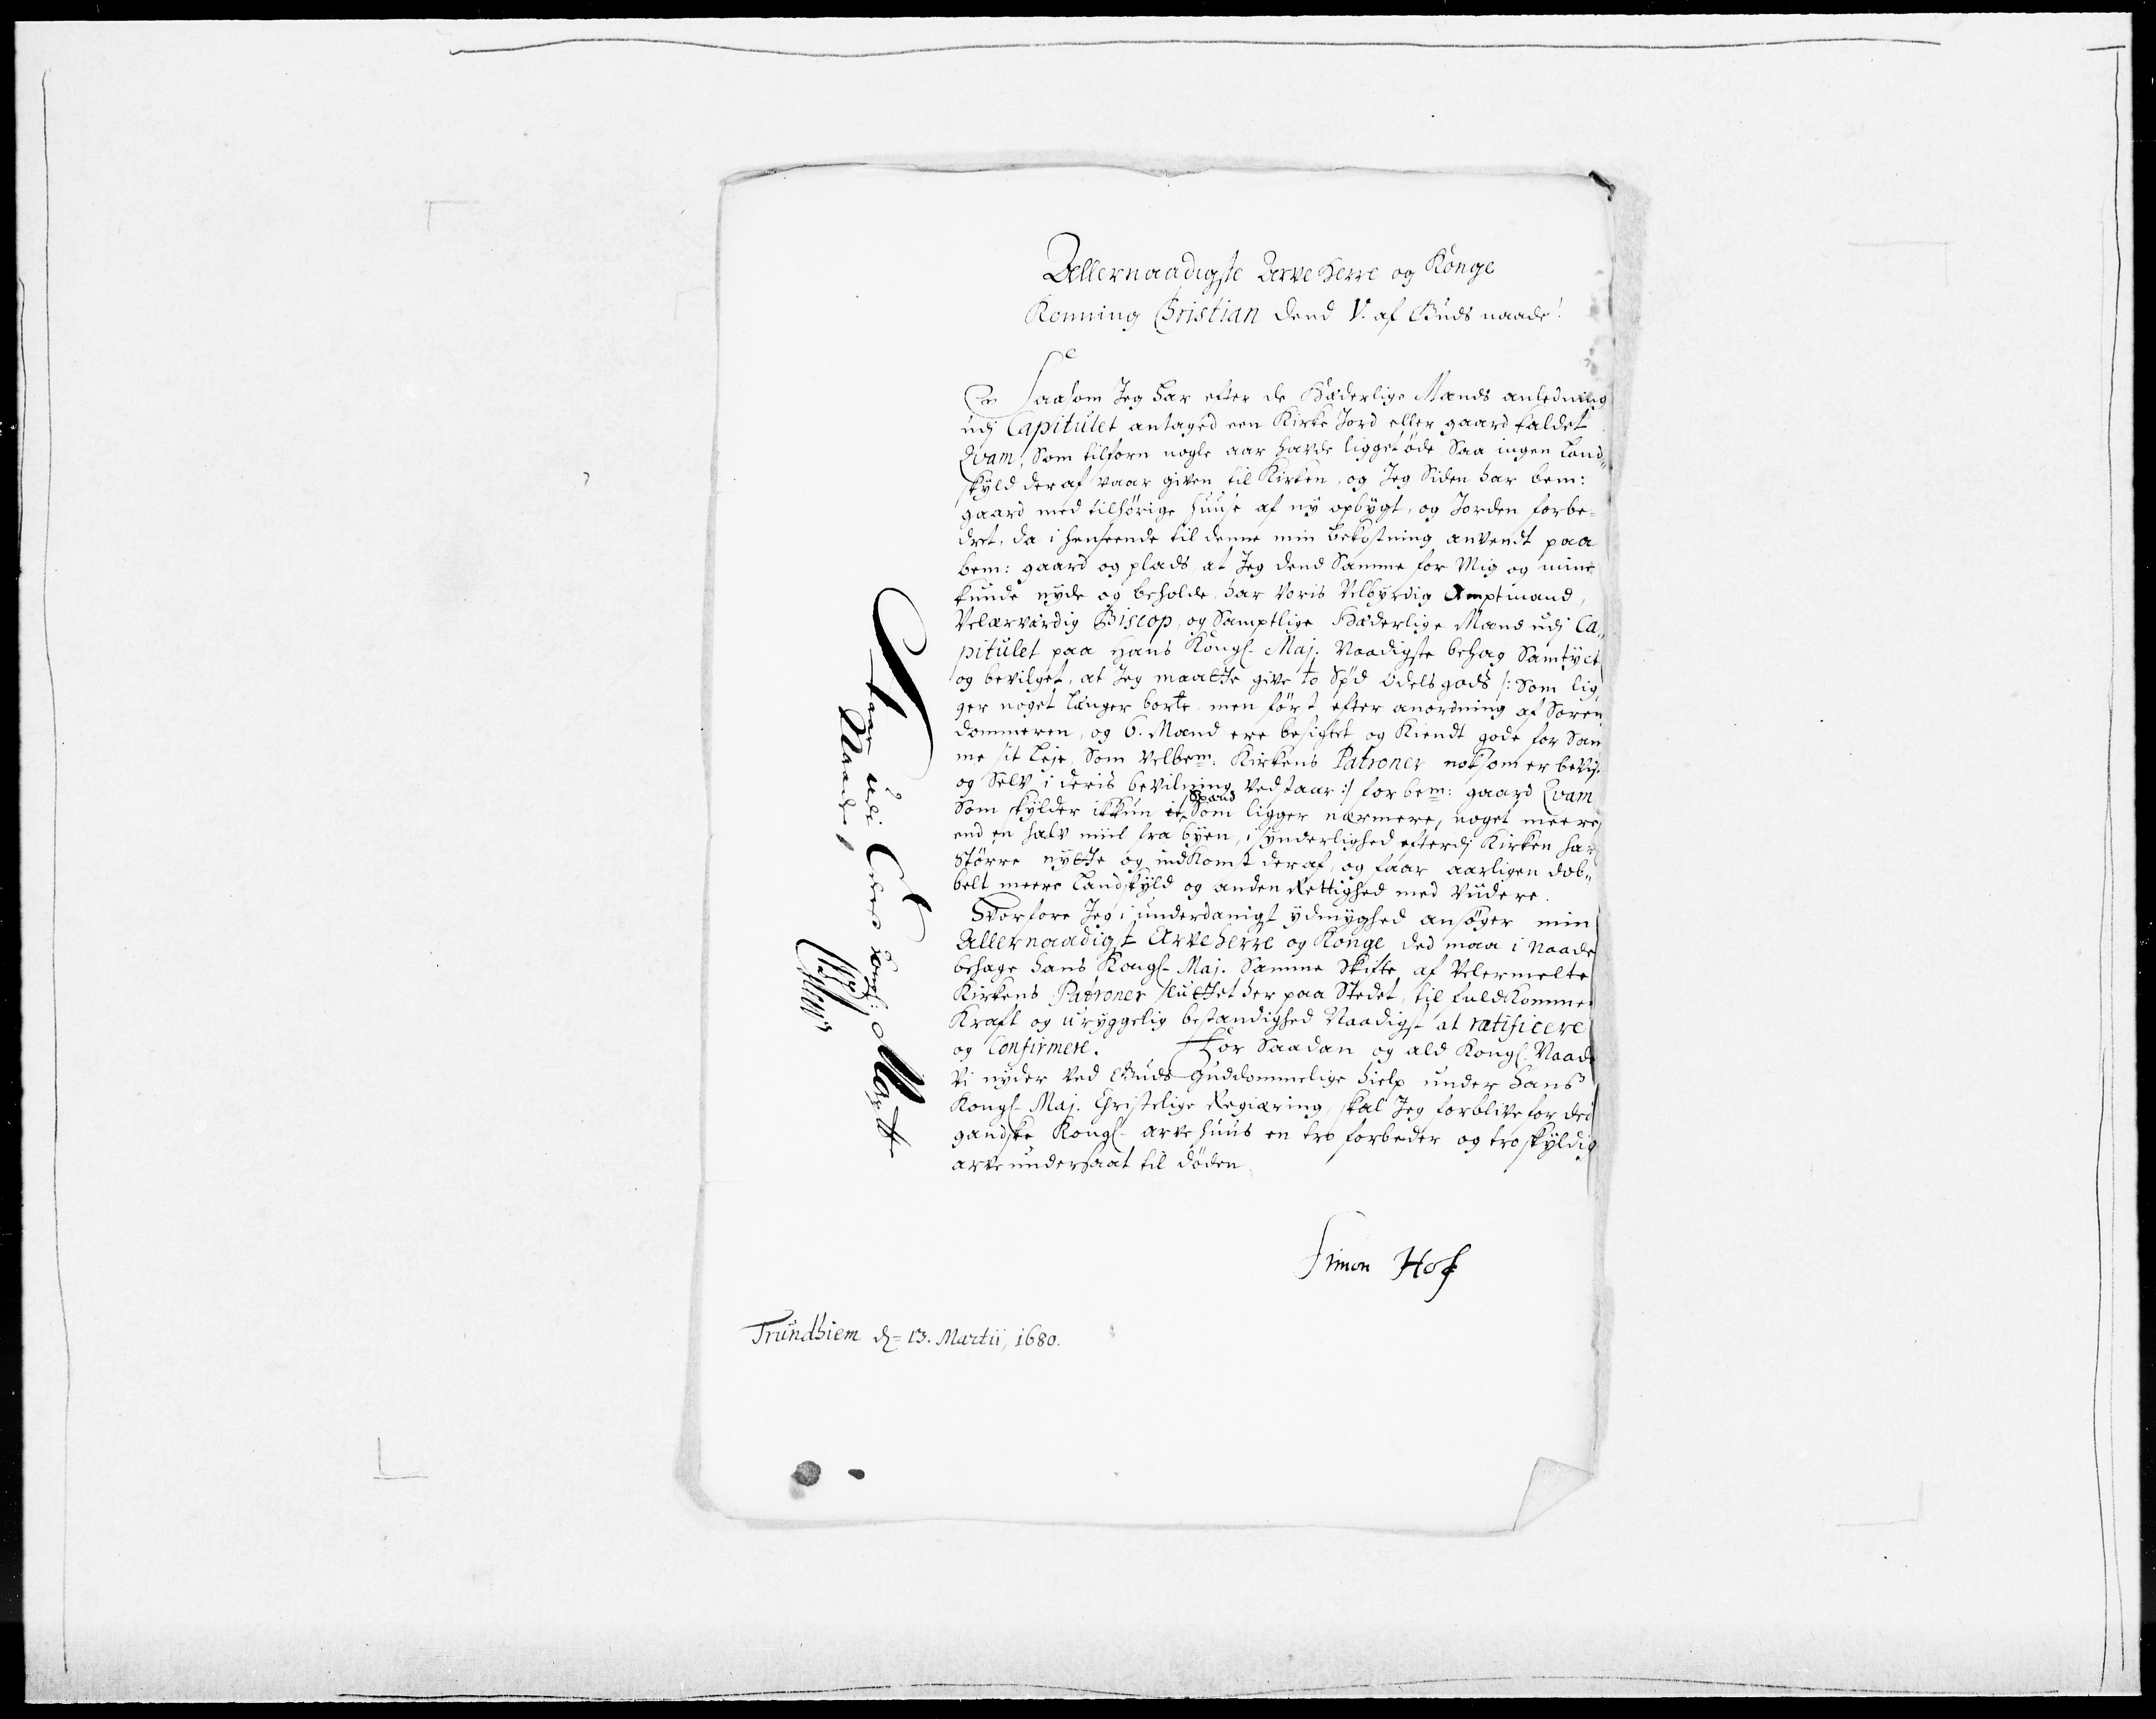 Allernaadigste Arve Herre og Konge
Konning Christian dend V. af Guds naade!
Saasom Jeg har efter de Hæderlige Mænds anledning
udj Capitulet antaged een Kirke Jord eller gaard kaldet
Qvam, Som tilforn nogle aar hafde ligget öde Saa ingen Land„
skyld der af vaar given til Kirken, og Jeg Siden har bem:
gaard med tilhörige huuse af ny opbygt, og Jorden forbe-
dret, da i henseende til denne min bekostning anvendt paa
bem: gaard og plads, at Jeg dend Samme for Mig og mine
kunde nyde og beholde, har Voris Velbyrdig Amptmand,
Velærværdig Biscop, og Samptlige Hæderlige Mænd udj Ca„
pitulet paa Hans Kongl. Maj. Naadigste behag Samtyct
og bevilget, at Jeg maatte give to Spd odelsgods /: Som lig
ger noget længer borte, men först efter anordning af Soren
dommeren, og 6. Mænd ere besigtet og Kiendt gode for Sam
me sit leje, Som velbem: Kirkens Patroner noksom er bevist
og Selv i deris bevilning vedstaar :/ for bem: gaard Qvam
Som skylder ikkun it Spand Som ligger nærmere, noget meere
end en halv miil fra byen, i synderlighed efterdj Kirken har
Större nytte og indkomst der af, og faar aarligen dob„
belt meere Landskyld og anden Rettighed med Viidere.
Hvorfore Jeg i underdanigst ydmyghed ansöger min
Allernaadigst Arve herre og Konge ded maa i Naade
behage hans Kongl. Maj. Samme Skifte af Velermelte
Kirkens Patroner sluttet her paa Stedet, til fuldkommen
Kraft og uryggelig bestandighed Naadigst at ratificere
og Confirmere. For Saadan og ald Kongl. Naade
Vi nyder ved Guds Guddommelige hielp under hans
Kongl. Maj. Christelige Regiæring, skal Jeg forblive for det
gandske Kongl. arve huus en tro forbeder og troskyldig
arve undersaat til döden.
Simon Hof
Trundhiem d. 13. Martii, 1680.
Staar udi Eders Kongl: Maytts
Naade,